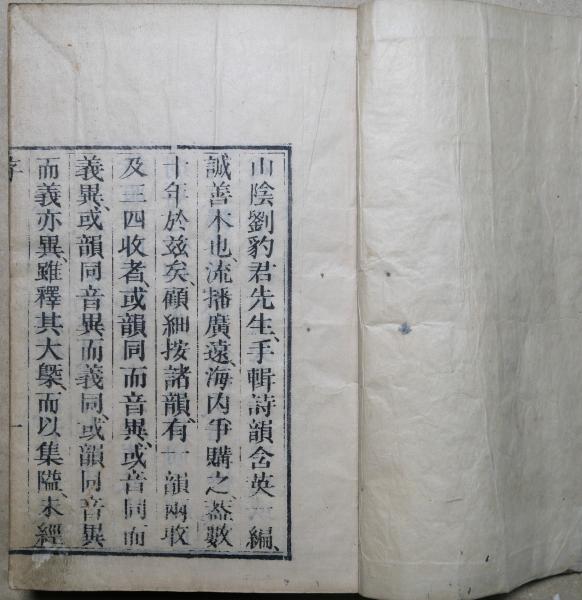 山陰劉豹君先生、手輯詩韻含英一編、
誠善本也、流播廣遠、海內爭購之、蓋數
十年於茲矣、顧細按諸韻、有一韻兩收
及三四收者、或韻同而音異、或音同而
義異、或韻同音異而義同、或韻同音異
而義亦異、雖釋其大槩、而以集隘、未經
序
一